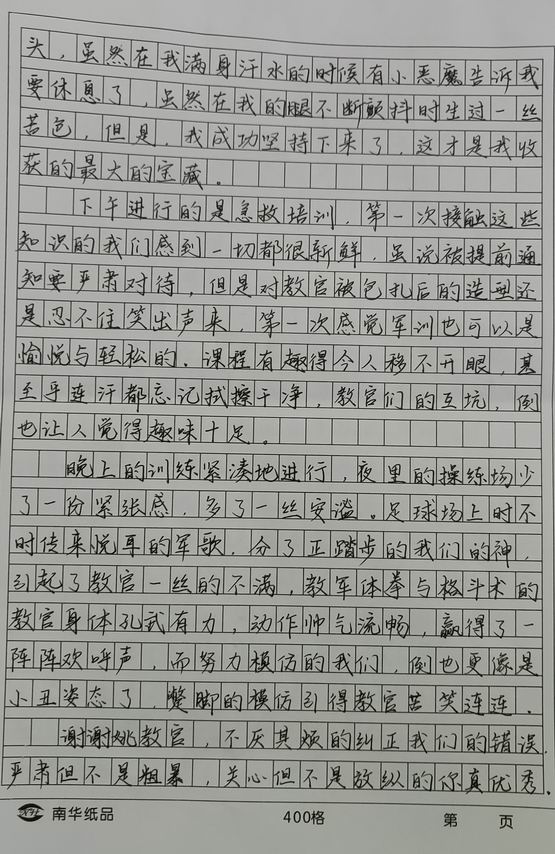 头，虽然在我满身汗水的时候有小恶魔告诉我
要休息了，虽然在我的腿不断颤抖时生过一丝
苦色，但是，我成功坚持下来了，这才是我收
获的最大的宝藏。
下午进行的是急救培训，第一次接触这些
知识的我们感到一切都很新鲜，虽说被提前通
知要严肃对待，但是对教官被包扎后的造型还
是忍不住笑出声来，第一次感觉军训也可以是
愉悦与轻松的。课程有趣得令人移不开眼，甚
至乎连汗都忘记拭擦干净，教官们的互坑，倒
也让人觉得趣味十足。
晚上的训练紧凑地进行，夜里的操练场少
了一份紧张感，多了一丝安谧。足球场上时不
时传来悦耳的军歌，分了正踏步的我们的神，
引起了教官一丝的不满，教军体拳与格斗术的
教官身体孔武有力，动作帅气流畅，赢得了一
阵阵欢呼声，而努力模仿的我们，倒也更像是
小丑姿态了，蹩脚的模仿引得教官苦笑连连。
谢谢姚教官，不厌其烦的纠正我们的错误，
严肃但不是粗暴，关心但不是放纵的你真优秀。
南华纸品 400格 第 页